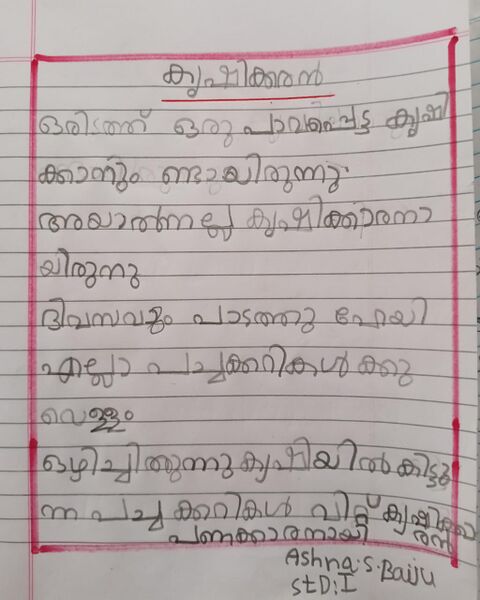 കൃഷിക്കരൻ
ഒരിടത്ത് ഒരു പാവപ്പെട്ട കൃഷി
ക്കാനും ണ്ടായിരുന്നു.
അയാൽനല്ല കൃഷിക്കാരനാ
യിരുന്നു
ദിവസവളും പാടത്തു പോയി
എല്ലാ പച്ചക്കറികൾ ക്കു
വെള്ളം
ഒഴിച്ചിത്തുന്നു കൃഷിയിൽ കിട്ടു
ന്ന പച്ച ക്കറികൾ വിറ്റ് കൃഷിക്കാ
രൻ
പണക്കാരനായി
Ashna.S.Baiju
StD:I